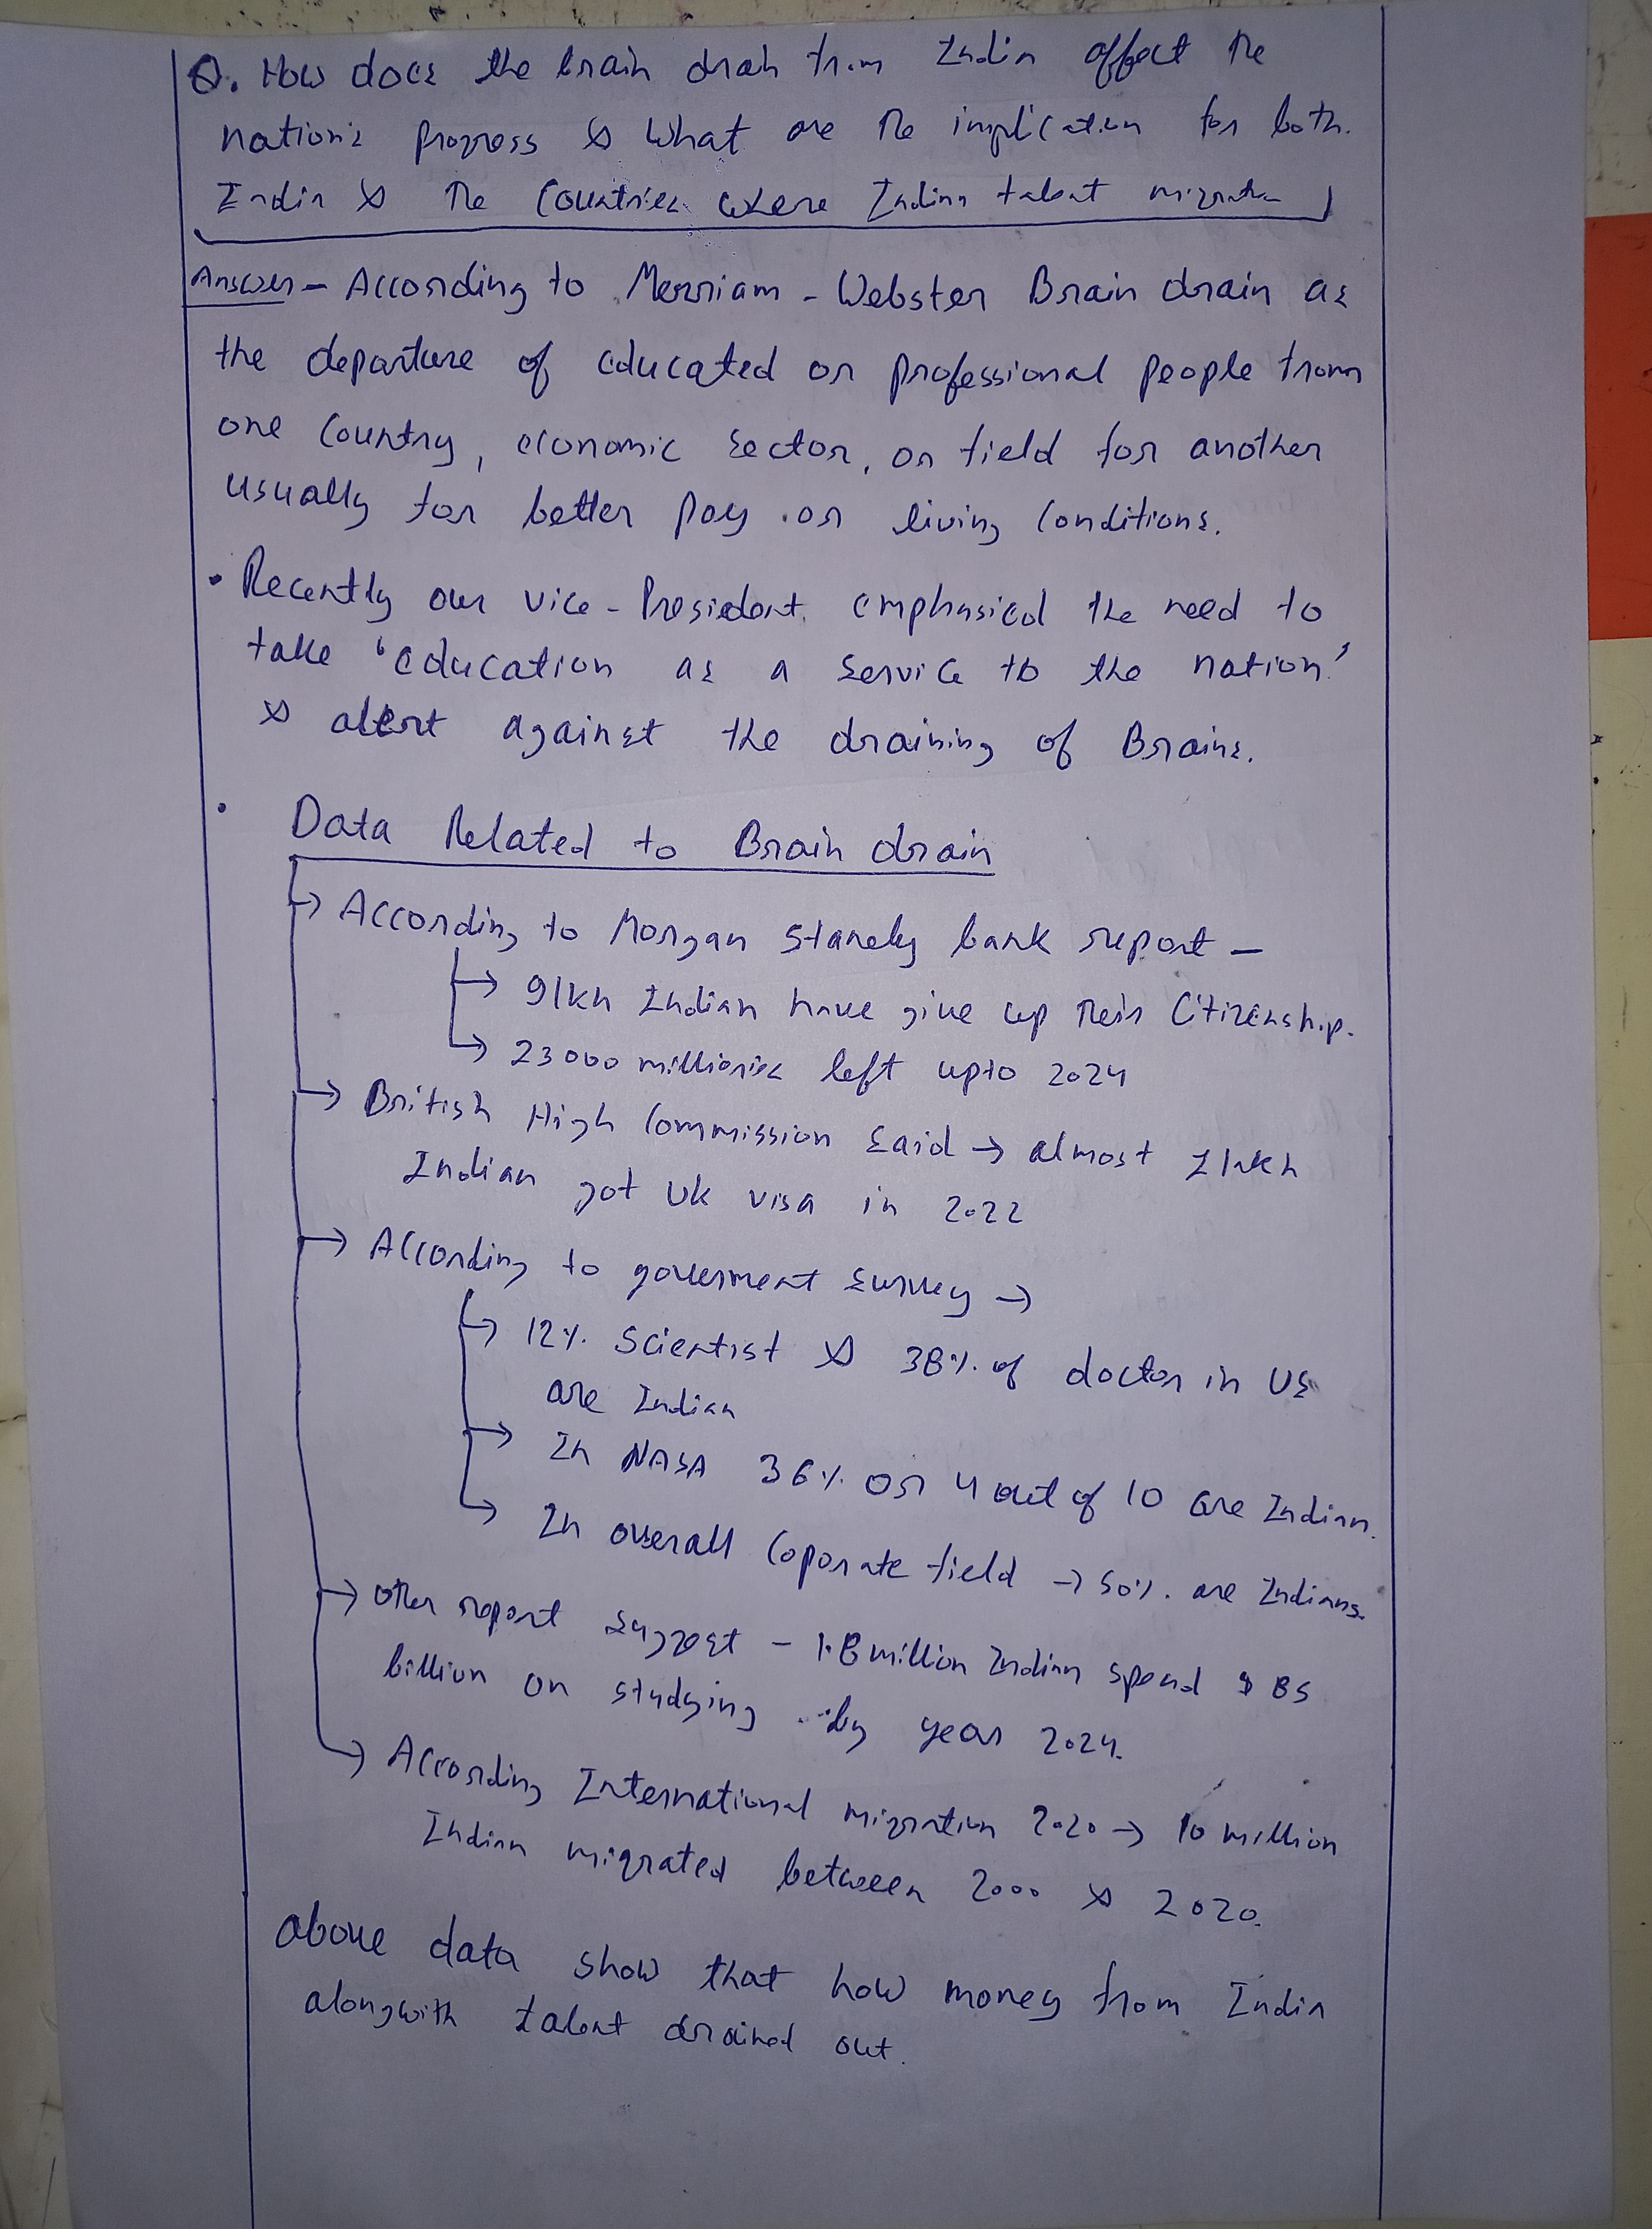 Q. How does the brain drain from India affect the
nation's progress & What are the implication for both
India & the Countries where Indian talent migration
Answer - According to Merriam - Webster Brain drain as
the departure of educated or professional people from
one Country, economic sector, or field for another
usually for better Pay or living Conditions.
• Recently our vice-President emphasied the need to
take 'education as a service to the nation'
& alert against the draining of Brains.
• Data Related to Brain drain
→ According to Morgan Stanely bank report -
→ 9lkh Indian have give up their Citizenship.
→ 23000 left upto 2024
→ British High Commission said → almost 1lakh
Indian got UK visa in 2022
→ According to goverment survey →
→ 12% Scientist & 38% of doctor in US
are Indian
→ In NASA 36% or 4 out of 10 are Indian.
→ In overall Coporate field → 50% are Indians.
→ Other report suggest - 1.8 million Indian spend $ 85
billion on studying by year 2024.
→ According International migration 2020 → 10 million
Indian migrated between 2000 & 2020.
above data show that how money from India
alongwith talent drained out.